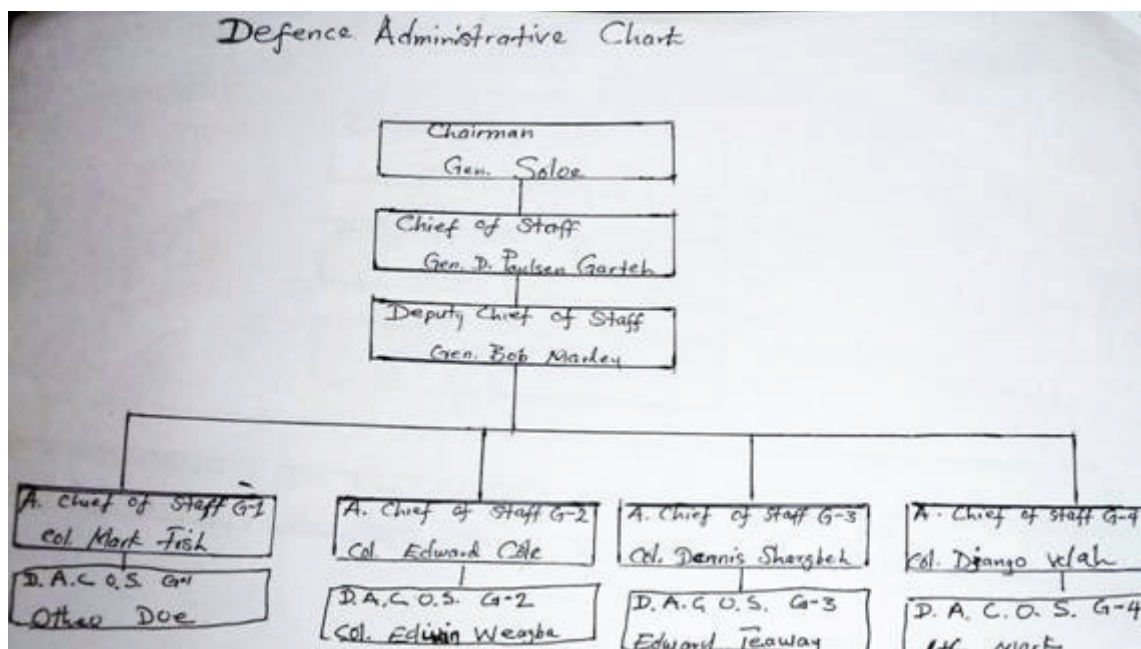 Defence Administrative Chart
Chairman
Gen. Soloe
Chief of Staff
Gen. D. Paulsen Garteh
Deputy Chief of Staff
Gen. Bob Marley
A. Chief of Staff G-1
Col. Mark Fish
D.A.C.O.S. G-1
Otheo Doe
A. Chief of Staff G-2
Col. Edward Cole
D.A.C.O.S. G-2
Col. Edwin Weagba
A. Chief of Staff G-3
Col. Dennis Shargbeh
D.A.C.O.S. G-3
Edward Teaway
A. Chief of Staff G-4
Col. Django Wlah
D.A.C.O.S. G-4